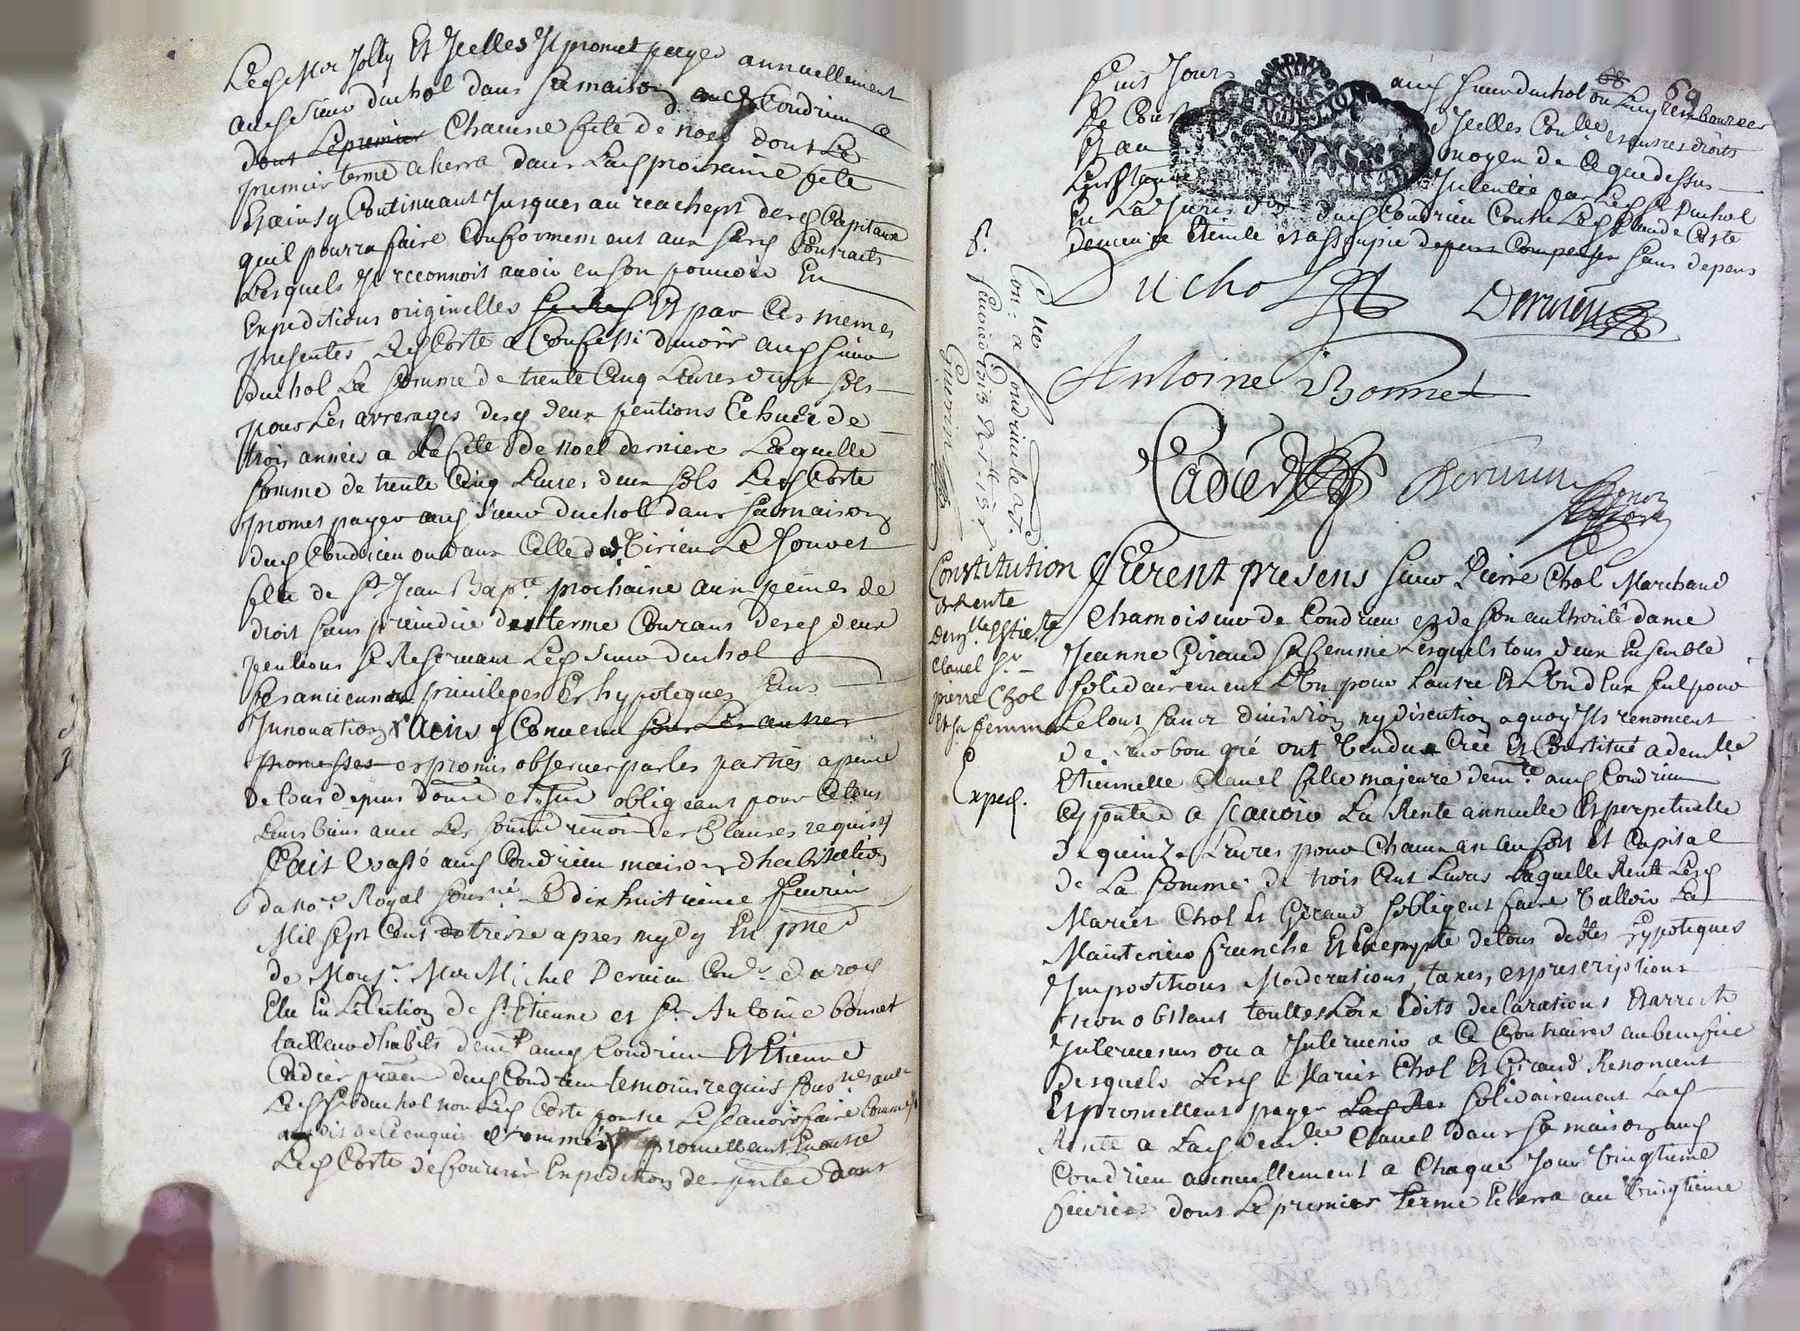 Led Mre Jolly Et Jcelles Jl promet payer annuellement
aud sieur duchol dans sa maison aud Condrieu a
dont Le premier Chacune fete de noel dont Le
premier terme eCherra dans Lad prochaine fete
Et ainsy Continuant Jusques au reachept desd Capitaux
quil pourra faire Conformement aux susd Contracts
Lesquels Jl reconnoit avoir en son pouvoir En
Expeditions originelles Et par Ces memes
presentes Led Corte a Confessé devoir aud sieur
duchol La somme de trente Cinq Livres deux sols
pour Les arrerages desd deux pentions Echues de
trois années a La fete de noel derniere Laquelle
somme de trente Cinq Livres deux sols Led Corte
promet payer aud sieur duchol dans sa maison
dud Condrieu ou dans Celle de Tirieu Le Jour et
fete de St Jean Bapte prochaine aux peines de
droit sans prejudice du terme Courant desd deux
pentions Se Reservant Led Sieur duchol
ses anciennes privileges Et hypoteques sans
Jnnovation Ainsy Convenu
promesses et promis observer par les parties a peine
De tous depens obligeant pour Ce tous
Leurs biens avec Les Clauses requises
Fait Et Passé aud Condrieu maison dhabitation
du nore Royal sousné Le dix huitieme feuvrier
Mil sept Cent treize apres mydy En pnce
de Monsr Mre Michel Dervieu Conser du roy
Elu En Lelection de St Etienne et Sr Antoine bonnet
tailleur dhabits demt aud Condrieu Et Etienne
Cadier praen dud Condrieu temoins requis sousnes avec
Led Sr duchol non Led Corte pour ne Le scavoir faire Comme Jl
a dit de Ce enquis et sommé promettant En outre
Led Corte de fournir Expedition des pntes dans
69
huis Jours aud sieur duchol ou Luy rembourcer
Le Coust dJcelles Conlle et autres droits
Et au moyen de Ce que dessus
Linstance Jntentée par Led Sr Duchol
En La Juris don dud Condrieu Contre Led Corte
demeure Eteinte et assoupie sans depens
Duchol
Dervieu
Antoine Bonnet
Cadier
Dervieu
Con: a Condrieu le
feuvrier 1713
Guerin
Constitution
de Rente
demlle Estienette
Clauel Sr
pierre Chol
Et sa femme
Exped.
Furent presens sieur Pierre Chol Marchand
Chamoiseur de Condrieu et de son authorité dame
Jeanne Giraud sa femme Lesquels tous deux Ensemble
solidairement L'Un pour Lautre Et L'Un d'Eux seul pour
Le tout sans division ny discution a quoy Jls renoncent
de Leur bon gré ont Vendu Crée Et Constitué a demlle
Etiennette Clauel fille majeure demte aud Condrieu
Cy pnte a scavoir La Rente annuelle Et perpetuelle
de quinze Livres pour Chacun an au sort Et Capital
de La somme de trois Cent Livres Laquelle Rente Lesd
Mariés Chol Et Giraud sobligent faire Valloir La
Maintenir franche Et Exempte de tous debtes hypoteques
Jmpositions Moderations, taxes, et prescriptions
nonobstant touttes Loix Edits declarations Et arrests
Jntervenus ou a Jntervenir a Ce Contraires au benefice
desquels Lesd Mariés Chol Et Giraud Renoncent
Et promettent payer solidairement Lad
Rente a Lad demlle Clauel dans sa maison aud
Condrieu annuellement a Chaque Jour Vingtieme
feuvrier dont Le premier terme Echerra au Vingtieme